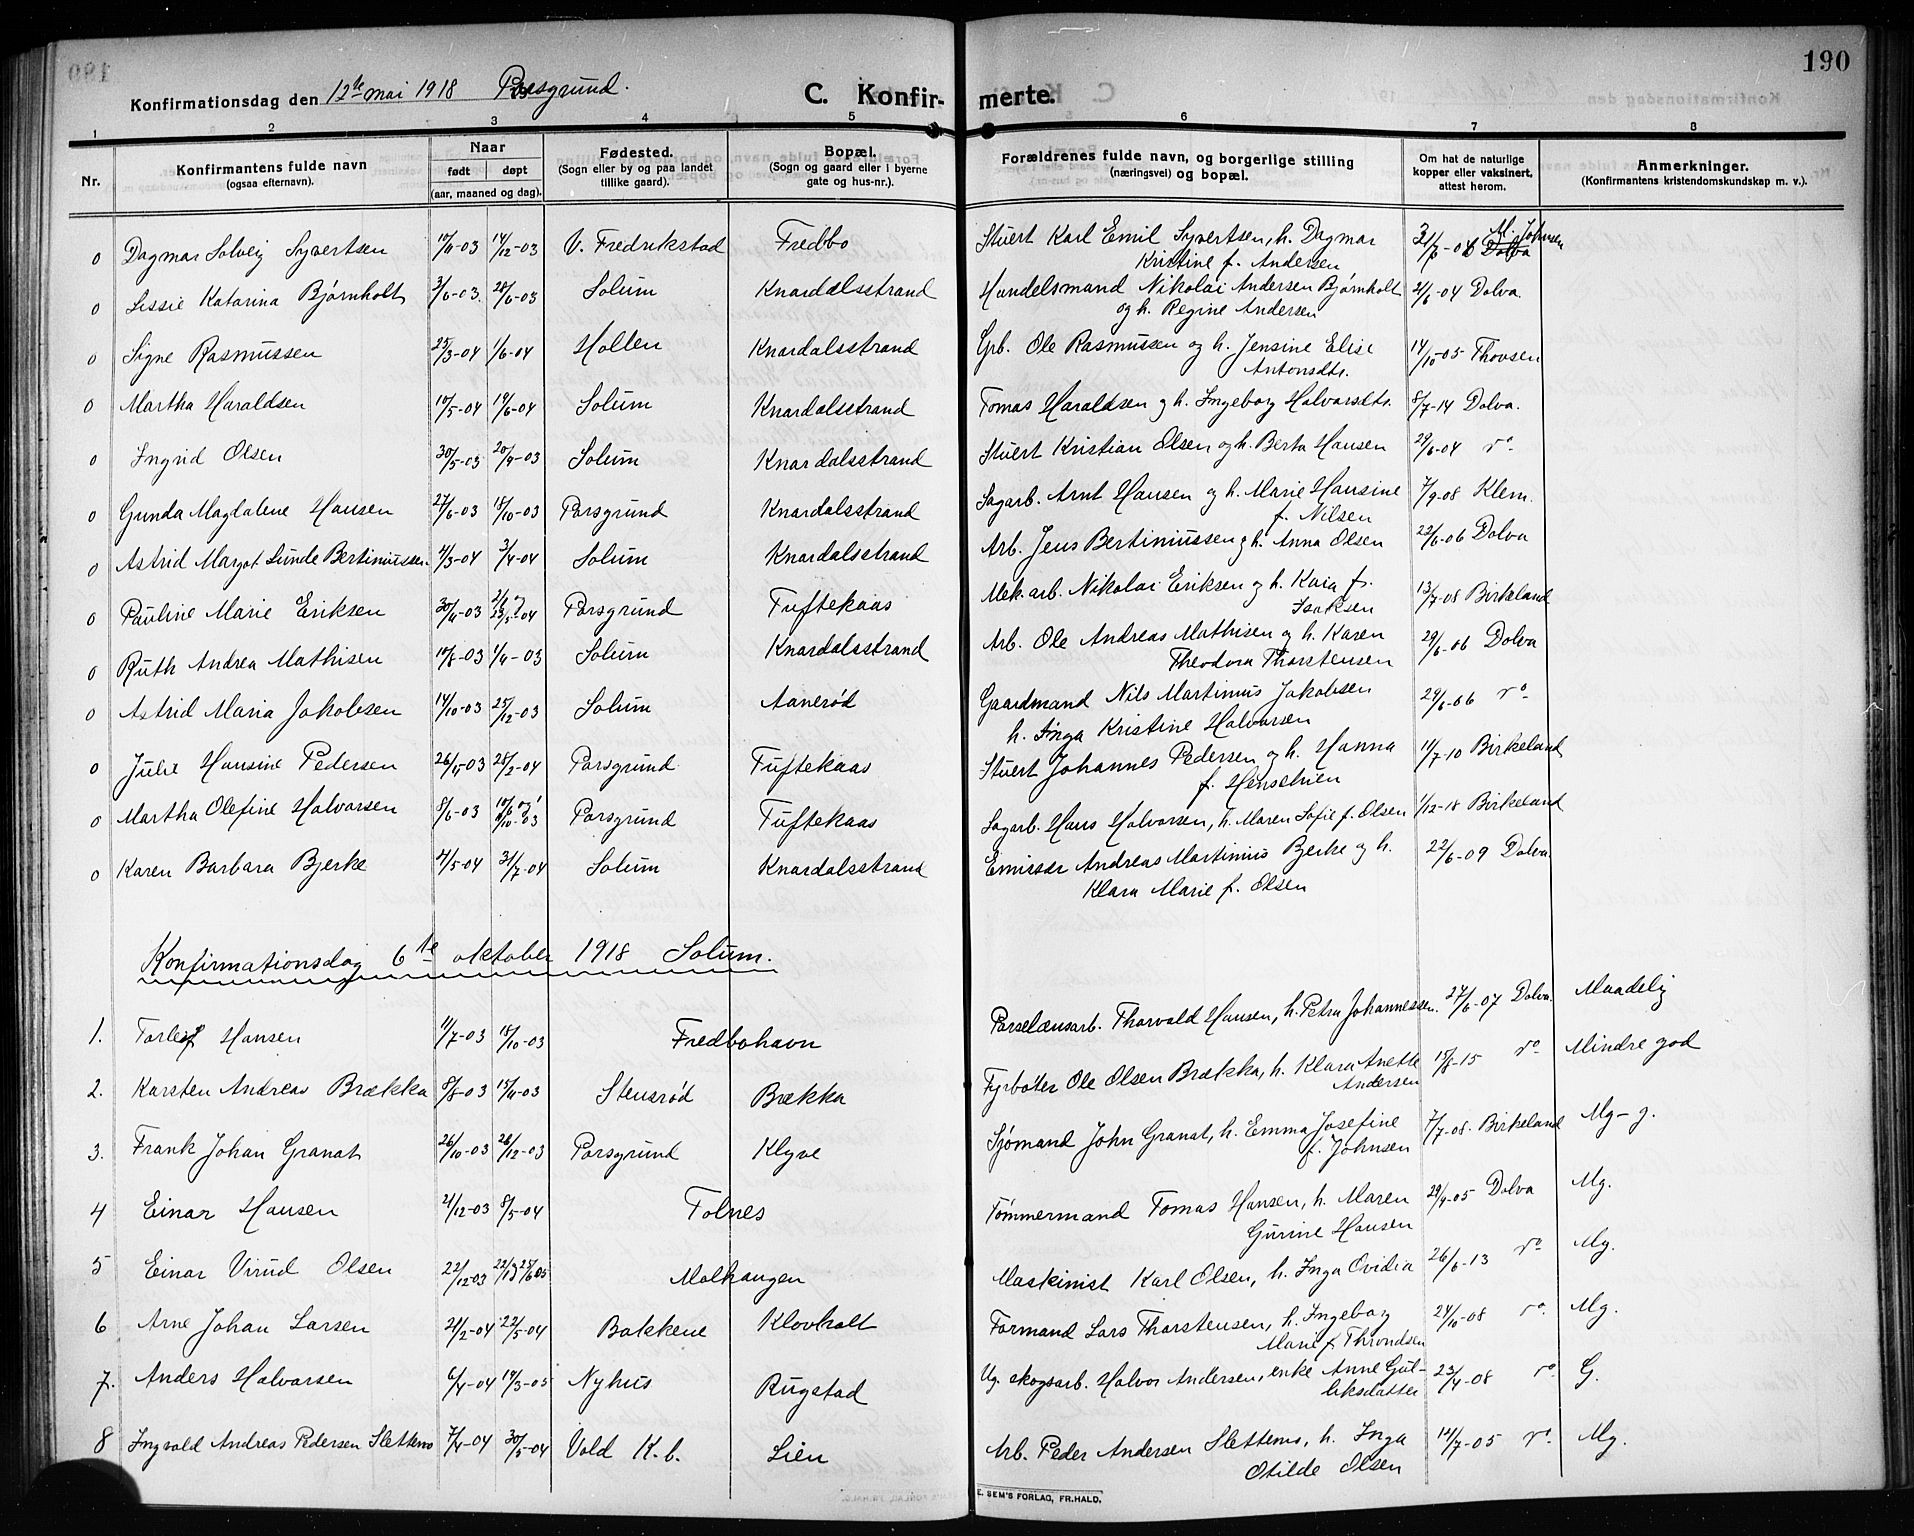 190
Konfirmationsdag den 12te mai 1918 Porsgrund.
C. Konfirmerte.
1 2 3 4 5 6 7 8
Nr. Konfirmantens fulde navn (ogsaa efternavn). Naar født døpt (aar, maaned og dag). Fødested. (Sogn eller by og paa landet tillike gaard). Bopæl. (Sogn og gaard eller i byerne gate og hus-nr.). Forældrenes fulde navn, og borgerlige stilling (næringsvei) og bopæl. Om hat de naturlige kopper eller vaksinert, attest herom. Anmerkninger. (Konfirmantens kristendomskundskap m. v.).
0 Dagmar Solveig Syvertsen 14/12-03 V. Fredrikstad Fredbo Stuert Karl Emil Syvertsen, h. Dagmar M. Johnsen
Kristine f. Andersen Dolva
0 Lissie Katarina Bjørnholt 3/6-03 28/6-03 Solum Knardalsstrand Handelsmand Nikolai Andersen Bjørnholt 21/6-04 Dolva.
og h. Regine Andersen
0 Signe Rasmussen 25/3-04 1/6-04 Hollen Knardalsstrand Grb. Ole Rasmussen og h. Jensine Elise 14/10-05 Thovsen
Antonsdtr.
0 Martha Haraldsen 10/5-04 19/6-04 Solum Knardalsstrand Tomas Haraldsen og h. Ingeborg Halvorsdtr. 8/7-14 Dolva.
0 Ingrid Olsen 30/5-03 20/9-03 Solum Knardalsstrand Stuert Kristian Olsen og h. Berta Hansen 29/6-04 ro.
0 Gunda Magdalene Hansen 27/6-03 18/10-03 Porsgrund Knardalsstrand Sagarb. Arnt Hansen og h. Marie Hansine 7/9-08 Klem.
f. Nilsen
0 Astrid Margot Lunde Bertiniussen. 4/3-04 3/4-04 Solum Knardalsstrand Arb. Jens Bertiniussen og h. Anna Olsen 23/6-06 Dolva
0 Pauline Marie Eriksen 30/11-03 Porsgrund Tuftekaas Mek. arb. Nikolai Eriksen og h. Kaia f. 13/7-08 Birkeland
Isaksen
0 Ruth Andrea Mathisen 10/8-03 1/11-03 Solum Knardalsstrand Arb. Ole Andreas Mathisen og h. Karen 29/6-06 Dolva
Theodora Thorstensen
0 Astrid Maria Jakobsen 14/10-03 25/12-03 Solum Aanerød Gaardmand Nils Martinius Jakobsen 29/6-06 ro.
h. Inga Kristine Halvorsen
0 Julie Hansine Pedersen 26/11-03 28/2-04 Porsgrund Tuftekaas Stuert Johannes Pedersen og h. Hanna 14/7-10 Birkeland
f. Henschien
0 Martha Olefine Halvorsen 8/6-03 Porsgrund Tuftekaas Sagarb. Hans Halvorsen, h. Maren Sofie f. Olsen 1/12-18 Birkeland
0 Karen Barbara Bjerke 4/5-04 31/7-04 Solum Knardalsstrand Emissær Andreas Martinius Bjerke og h. 22/6-09 Dolva.
Klara Marie f. Olsen
Konfirmationsdag 6te oktober 1918 Solum.
1. Torleif Hansen 11/7-03 18/10-03 Fredbohavn Porselænsarb. Thorvald Hansen, h. Petra Johannessen. 27/6-07 Dolva. Maadelig
2. Karsten Andreas Brækka 8/8-03 15/11-03 Stensrød Brækka Fyrbøter Ole Olsen Brækka, h. Klara Anette 15/8-15 ro Mindre god
Andersen
3. Frank Johan Granat 26/10-03 26/12-03 Porsgrund Klyve Sjømand John Granat, h. Emma Josefine 7/7-08. Birkeland Mg - g.
f. Johnsen
4 Einar Hansen 21/12-03 8/5-04 Tolnes Tømmermand Tomas Hansen, h. Maren 29/9-05 Dolva Mg.
Gurine Hansen
5 Einar Virud Olsen 22/12-03 Molhaugen Maskinist Karl Olsen, h. Inga Ovidia 26/6-13 ro Mg.
6 Arne Johan Larsen 21/2-04 22/5-04 Bakkene Klovholt Formand Lars Thorstensen, h. Ingeborg 24/10-08 ro. Mg.
Marie f. Throndsen
7. Anders Halvorsen 6/4-04 19/3-05 Nyhus Rugstad Ug. skogsarb. Halvor Andersen, enke Anne Gul- 23/4-08 ro. G.
liksdatter
8 Ingvald Andreas Pedersen Slettemo 7/4-04 30/5-04 Vold K.b. Lien Arb. Peder Andersen Slettemo, h. Inga 12/7-05 ro. Mg.
Otilde Olsen
E. SEM'S FORLAG, FR.HALD.